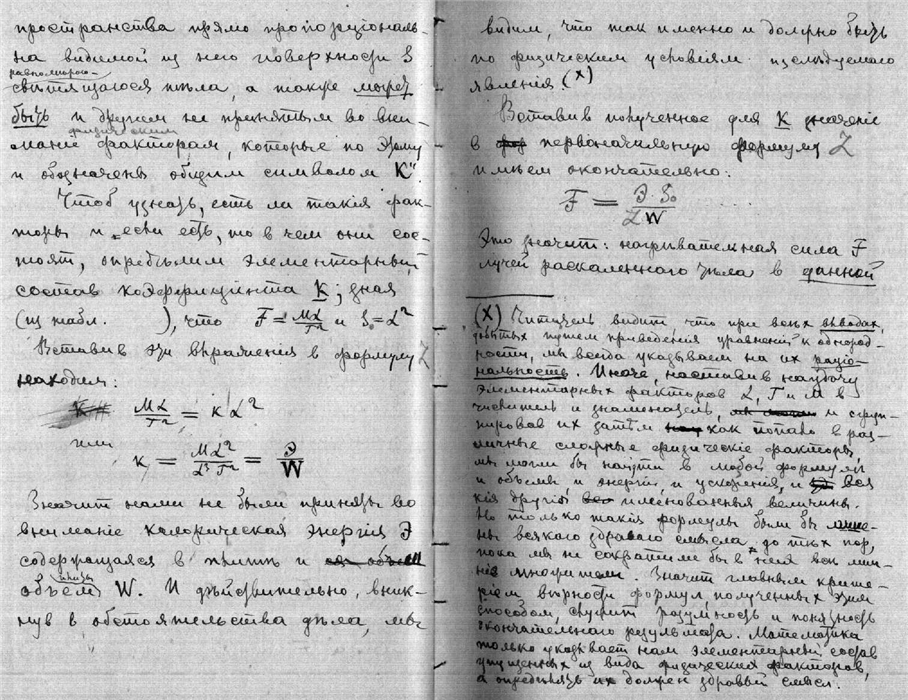 пространства прямо пропорціональ-
на видимой из него поверхности S
равномѣрно
свѣтящагося тѣла, а также может
быть и другим не принятым во вни-
физическим
маніе факторам, которые по этому
и обозначены общим символом К"
Чтоб узнать, есть ли такія фак-
торы и если есть, то в чем они сос-
тоят, опредѣлим элементарный
состав коэффиціента К; зная
(из табл. ), что F = ML/T² и S = L²
Вставив эти выраженія в формулу Z
находим:
ML/T² = K L²
или
K = ML²/L³T² = Э/W
Значит нами не были приняты во
вниманіе калорическая энергія Э
содержащаяся в тѣлѣ и
объем W. И дѣйствительно, вник-
нув в обстоятельства дѣла, мы
видим, что так именно и должно быть
по физическим условіям изслѣдуемаго
явленія (х)
Вставив полученное для К значеніе
в первоначальную формулу Z
имѣем окончательно:
F = Э S / W
Это значит: нагрѣвательная сила F
лучей раскаленного тѣла в данной
(х) Читатель видит, что при всѣх выводах,
добытых путем приведенія уравненій к однород-
ности, мы всегда указываем на их раціо-
нальность. Иначе, наставив наудачу
элементарных факторов L, T и M в
числитель и знаменатель, и сгруп-
пировав их затѣм как попало в раз-
личные сложные физическіе факторы,
мы могли бы найти в любой формулѣ
и объемы и энергіи и ускоренія, и вся
кія другія именованныя величины.
Но только такія формулы были бы лише-
ны всякаго здраваго смысла, до тѣх пор,
пока мы не сократили бы в ней всѣ лиш-
ніе множители. Значит главным крите-
ріем вѣрности формул полученных этим
способом, служит разумность и понятность
окончательного результата. Математика
только указывает нам элементарный состав
упущенных из вида физических факторов,
а опредѣлять их должен здравый смысл.